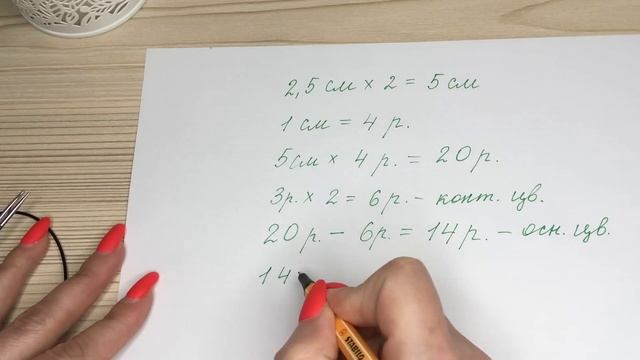 2,5 см × 2 = 5 см
1 см = 4 р.
5см × 4 р. = 20р.
3р. × 2 = 6 р. - конт. цв.
20 р. - 6р. = 14 р. - осн. цв.
14
STABILO